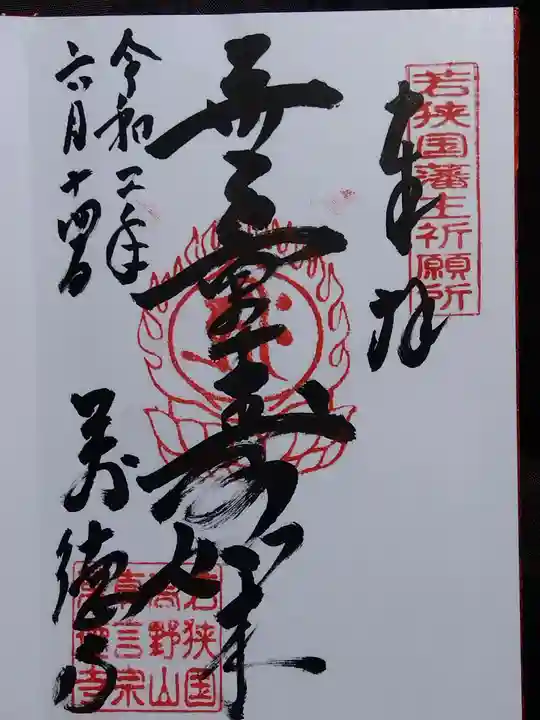 奉拝
若狭国藩主祈願所
無量寿如来
令和二年
六月十四日
萬徳寺
若狭国
高野山
真言宗
萬徳寺